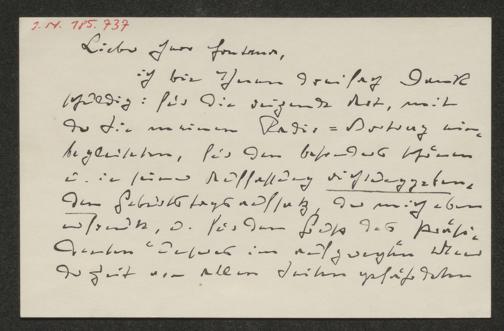 I.N. 185.737
Lieber Herr Fontana,
ich bin Ihnen dreifach Dank
schuldig: für die reizende Art, mit
der Sie meinen Radio=Vortrag ein-
begleiteten, für den besonders schönen
u. in seiner Auffassung richtunggeben-
den Geburtstagsaufsatz, der mich eben
erfreut, u. für den des Präsi-
denten im Wien
der Zeit von allen Seiten